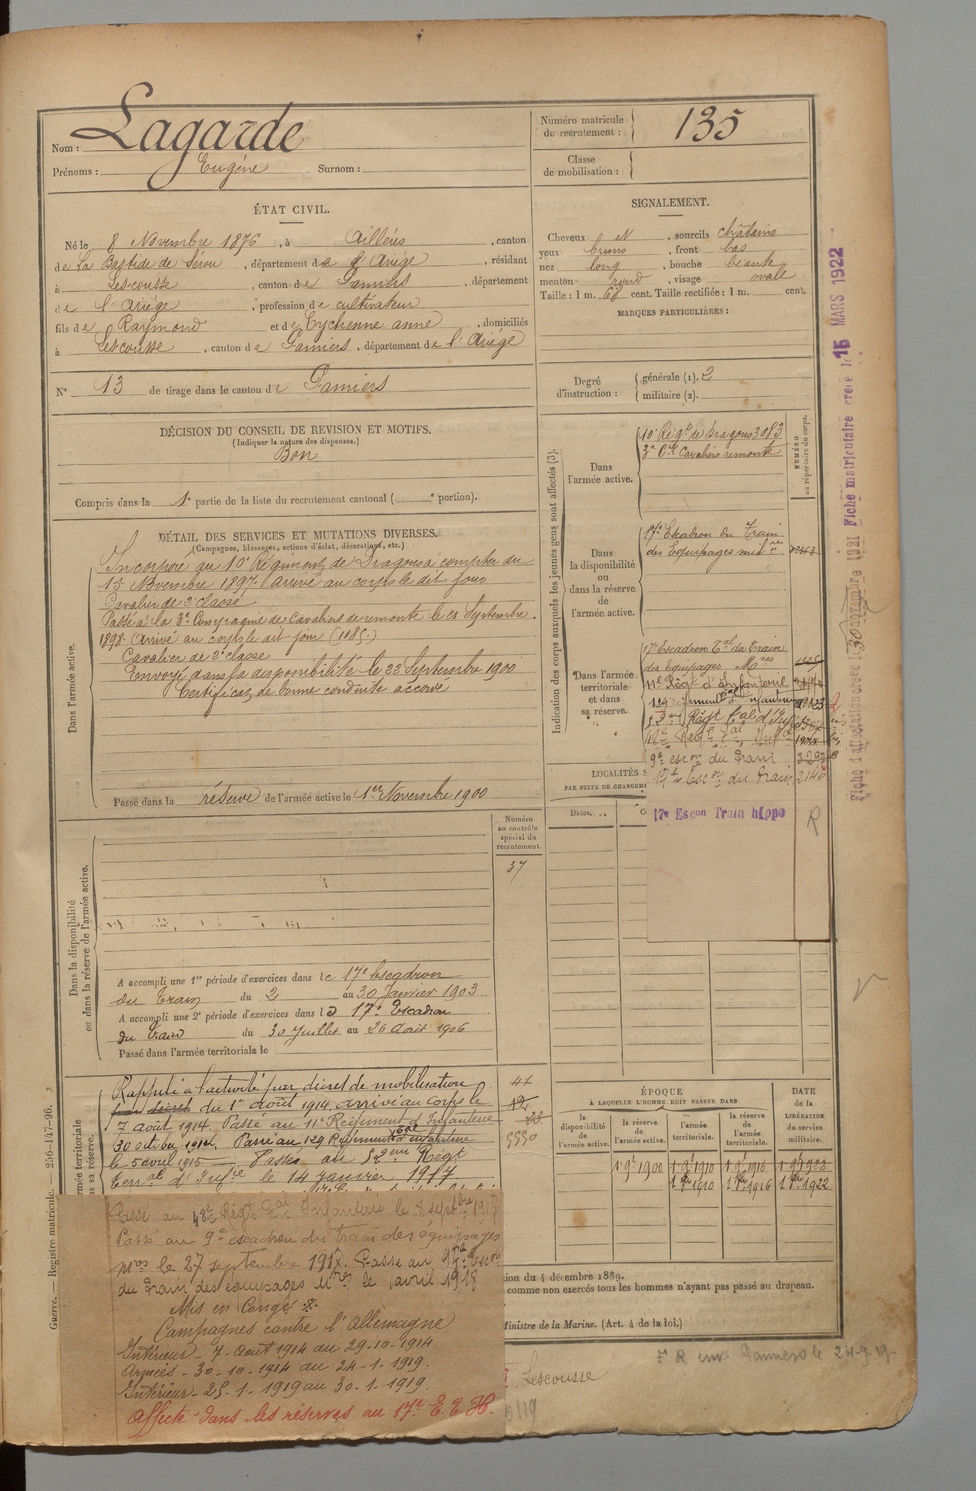 Nom : Lagarde
Prénoms : Eugène Surnom :
Numéro matricule de recrutement : 135
Classe de mobilisation :
ÉTAT CIVIL.
Né le 8 Novembre 1876, à Aillères, canton
de La Bastide de Sérou, département de l'Ariège, résidant
à Lescousse, canton de Pamiers, département
de l'Ariège, profession de cultivateur
fils de Raymond et de Eychenne anne, domiciliés
à Lescousse, canton de Pamiers, département de l'Ariège
N° 13 de tirage dans le canton de Pamiers
SIGNALEMENT.
Cheveux N, sourcils châtains
yeux bruns, front bas
nez long, bouche béante
menton rond, visage ovale
Taille : 1 m. 68 cent. Taille rectifiée : 1 m. cent.
MARQUES PARTICULIÈRES :
Degré d'instruction : générale (1). 2
militaire (2).
DÉCISION DU CONSEIL DE REVISION ET MOTIFS.
(Indiquer la nature des dispenses.)
Bon
Compris dans la 1e partie de la liste du recrutement cantonal ( e portion).
DÉTAIL DES SERVICES ET MUTATIONS DIVERSES.
(Campagnes, blessures, actions d'éclat, décorations, etc.)
Dans l'armée active.
Incorporé au 10e Régiment de Dragons à compter du
15 Novembre 1897. Arrivé au corps le dit jour
Cavalier de 2e classe
Passé à la 3e Compagnie de Cavaliers de remonte le 21 Septembre
1898. Arrivé au corps le dit jour
Cavalier de 2e classe
Envoyé dans la disponibilité le 22 Septembre 1900
Certificat de bonne conduite accordé
Passé dans la réserve de l'armée active le 1er Novembre 1900
Indication des corps auxquels les jeunes gens sont affectés (3).
NUMÉRO au répertoire du corps.
Dans l'armée active.
10e Régt de Dragons 3083
3e Cie Cavaliers remonte
Dans la disponibilité ou dans la réserve de l'armée active.
17e Escadron du Train
des Équipages milres
Dans l'armée territoriale et dans sa réserve.
17e Escadron Tal du Train
des Equipages Mres
11e Régt d'Infanterie
129 régiment Tal d'infanterie
18e Régt Tal Infie
9e escon du Train
17e Escon du Train 2140
17e Escon Train hippo
R
LOCALITÉS S
PAR SUITE DE CHANGEM
Dates.
Dans la disponibilité ou dans la réserve de l'armée active.
Numéro au contrôle spécial du recrutement.
37
A accompli une 1re période d'exercices dans le 17e Escadron
du Train du 2 au 30 Janvier 1903
A accompli une 2e période d'exercices dans le 17e Escadron
du Train du 30 Juillet au 26 Août 1906
Passé dans l'armée territoriale le
Rappelé à l'activité par décret de mobilisation
du 1er août 1914. arrivé au corps le
7 août 1914. Passé au 11e Régiment d'Infanterie
30 octobre 1914. Passé au 129 Régiment Tal d'infanterie
le 5 avril 1915 Passé au 52eme Régt
Terral d'Infie le 14 Janvier 1917
Passé au 48e Régt Tal Infanterie le 8 septbre 1917
Passé au 9e escadron du train des équipages
mres le 27 septembre 191 . Passé au 17me Escon
du Train des équipages Mres le 1 avril 1918
Mis en Congé
Campagnes contre l'Allemagne
Intérieur - 7 - Août 1914 au 29-10-1914
Armées - 30-10-1914 au 24-1-1919.
Intérieur - 25-1-1919 au 30-1-1919.
Affecté dans les réserves au 17e E. T. H.
ÉPOQUE
À LAQUELLE L'HOMME DOIT PASSER DANS
la disponibilité de l'armée active.
la réserve de l'armée active.
l'armée territoriale.
la réserve de l'armée territoriale.
DATE de la LIBÉRATION du service militaire.
1 9e 1900 1 9e 1910 1 9e 1916
1 9e 1910 1 9e 1916 1 9e 1922
tion du 4 décembre 1889.
comme non exercés tous les hommes n'ayant pas passé au drapeau.
Ministre de la Marine. (Art. 4 de la loi.)
Lescousse
Guerre. — Registre matricule. — 256-147-96.
Fiche matriculaire créée le 15 MARS 1922
Fiche d'affectation créée le 30 novembre 1921